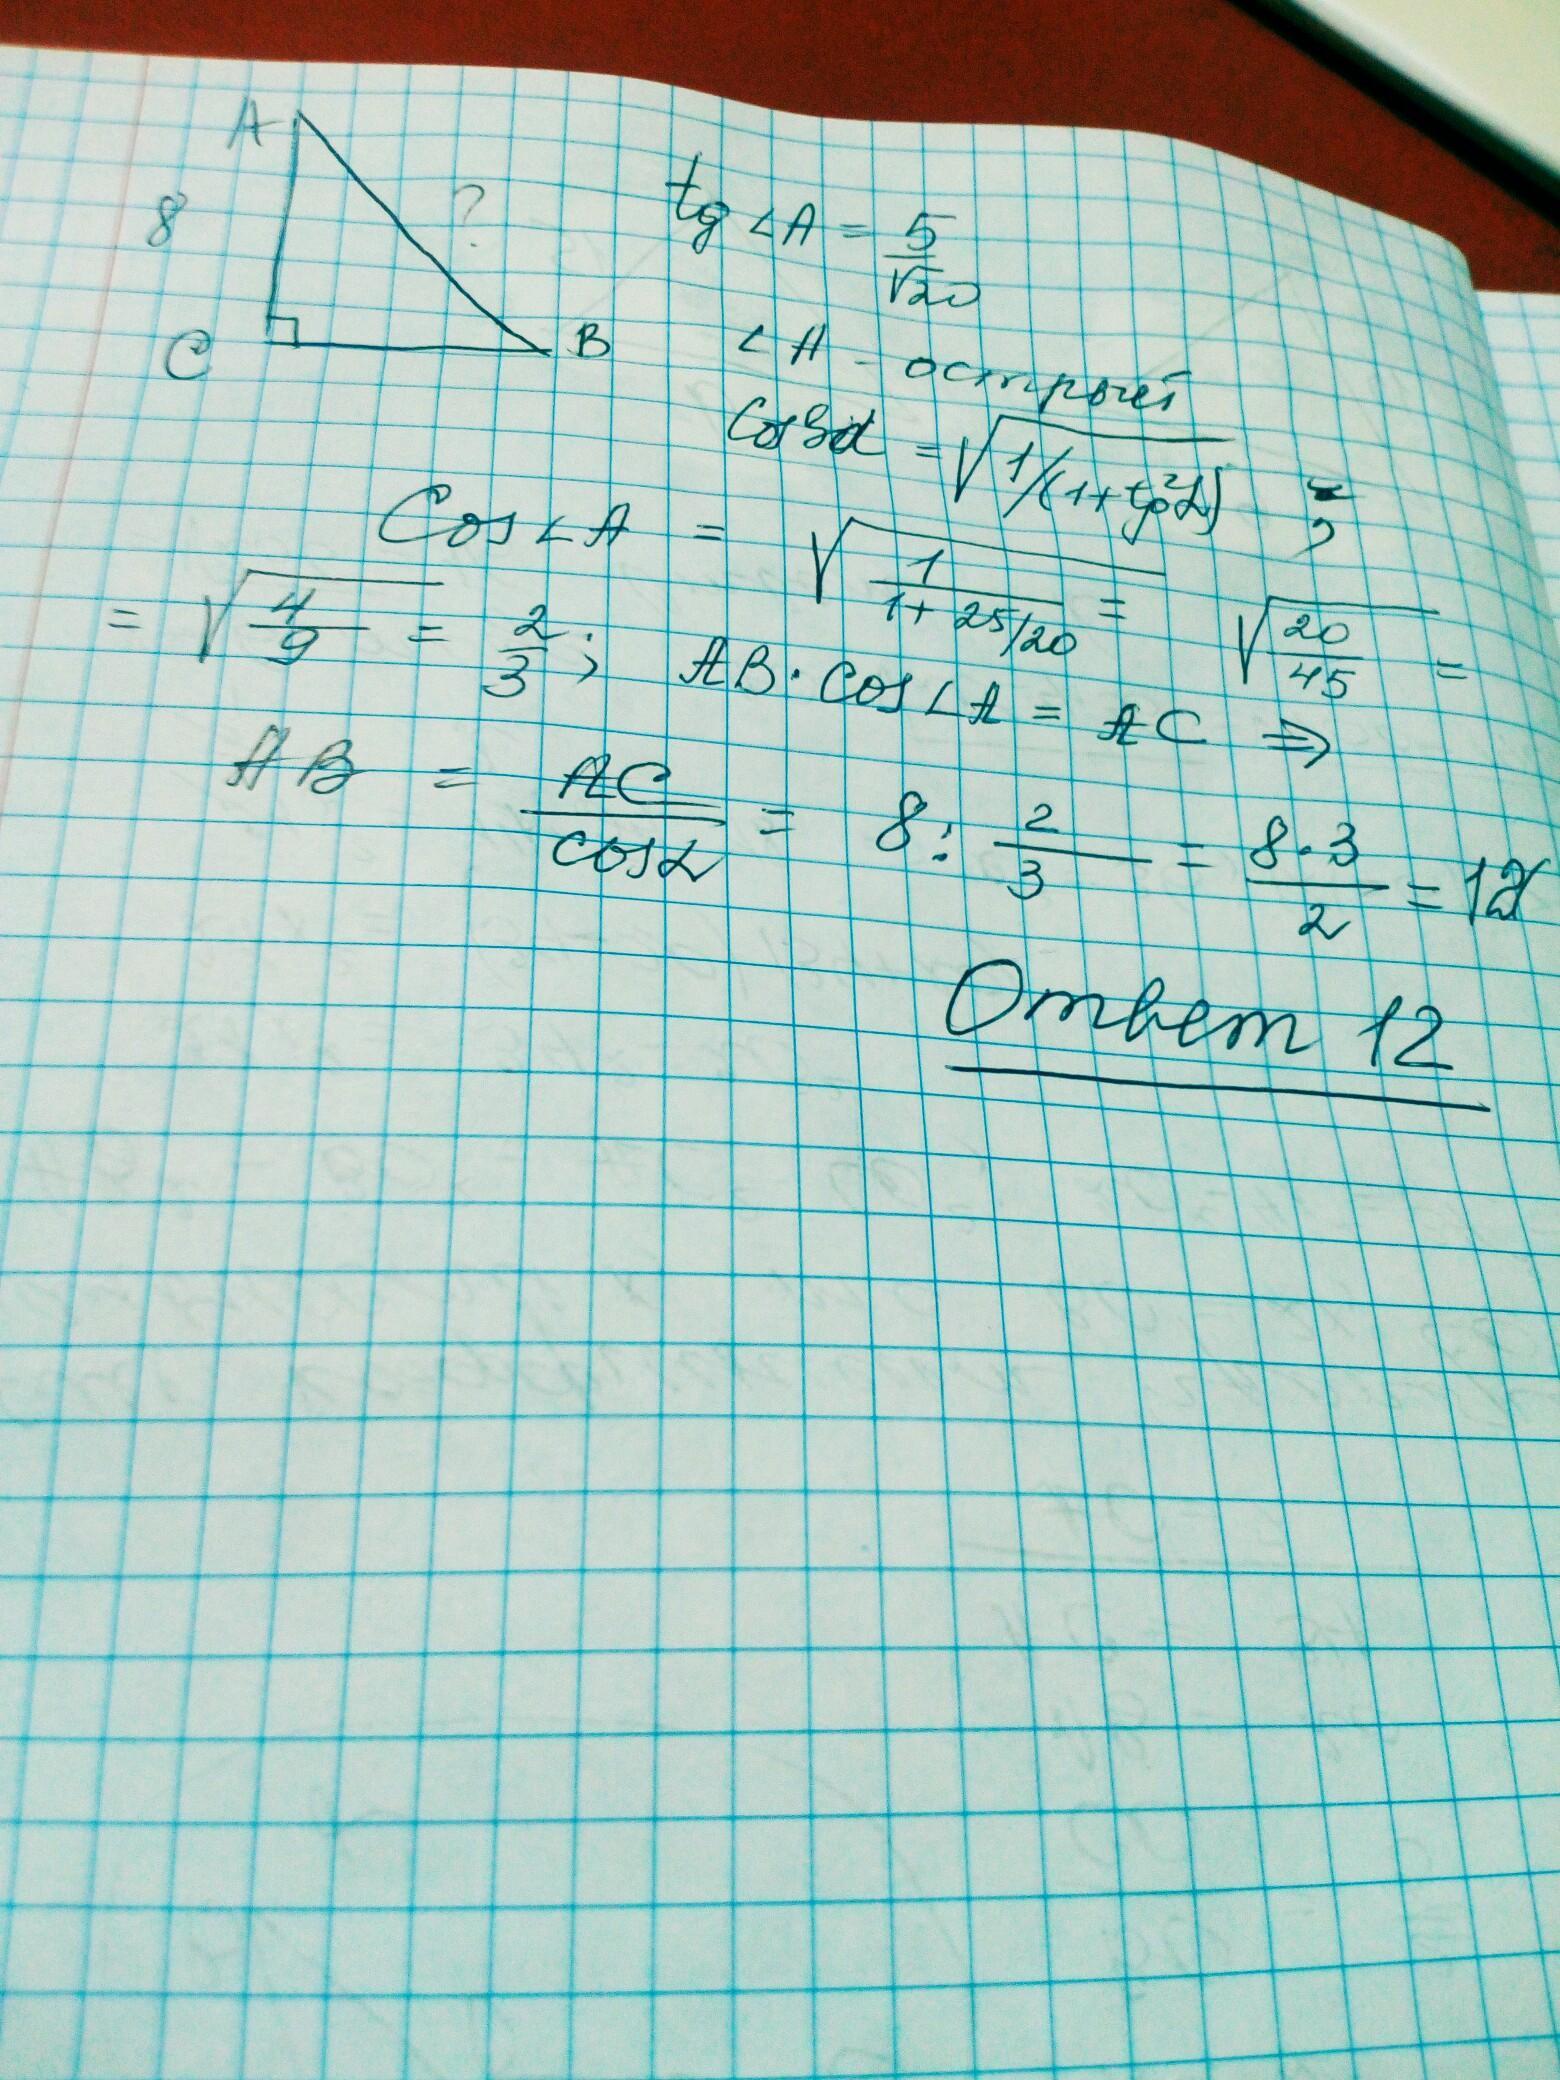 A
8
?
C
B
tg ∠A = 5/√20
∠A - острый
Cos α = √(1/(1+tg²α)) ;
Cos ∠A = √(1/(1+25/20)) = √(20/45) =
= √(4/9) = 2/3 ; AB · cos ∠A = AC ⇒
AB = AC/cosα = 8 : 2/3 = 8·3/2 = 12
Ответ 12